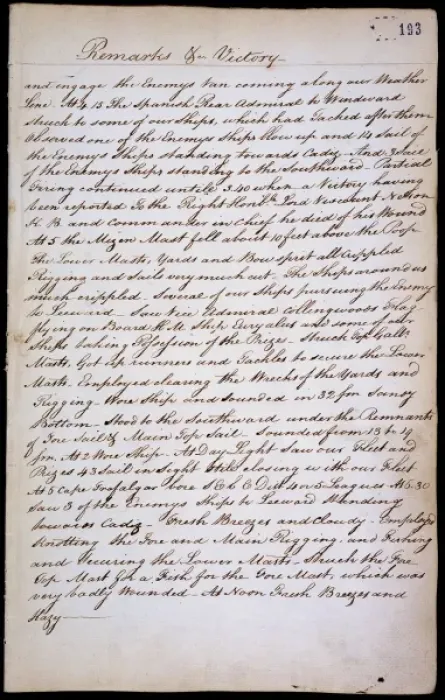 193
Remarks &c Victory
and engage the Enemys Van coming along our Weather
Line. At 4.15 The Spanish Rear Admiral to Windward
Struck to some of our Ships, which had Tacked after them
Observed one of the Enemys Ships blow up and 14 Sail of
the Enemys Ships standing towards Cadiz - And 3 Sail
of the Enemys Ships standing to the Southward - Partial
firing continued untile 3.40 when a Victory having
been reported To the Right Honble. Lord Viscount Nelson
K. B. and Commander in Chief he died of his Wound
At 5 the Mizen Mast fell about 10 feet above the Poop
The Lower Masts, Yards and Bowsprit all Crippled
Rigging and Sails very much cut. The Ships around us
much crippled - Several of our Ships pursuing the Enemy
to Leeward - Saw Vice Admiral Collingwoods Flag
flying on Board H. M. Ship Euryalus and some of our
Ships taking Possession of the Prizes - Struck Top Gallt.
Masts, Got up runners and Tackles to secure the Lower
Masts. Employed clearing the Wrecks of the Yards and
Rigging - Wore Ship and Sounded in 32 fm Sandy
Bottom - Stood to the Southward under the Remnants
of Fore Sail & Main Top Sail - Sounded from 13 to 19
fm. At 2 Wore Ship - At Day Light Saw our Fleet and
Prizes 43 Sail in Sight Still closing with our Fleet
At 6 Cape Trafalgar bore S E b E Dist 4 or 5 Leagues At 6.30
Saw 3 of the Enemys Ships to Leeward Standing
towards Cadiz - Fresh Breezes and Cloudy - Employed
Knotting the Fore and Main Rigging and Fishing
and Securing the Lower Masts - Struck the Fore
Top Mast for a Fish for the Fore Mast, which was
very badly Wounded - At Noon Fresh Breezes and
Hazy